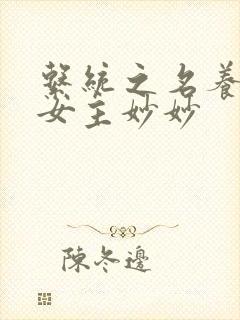 繫統之名養
女主妙妙
陳冬邊